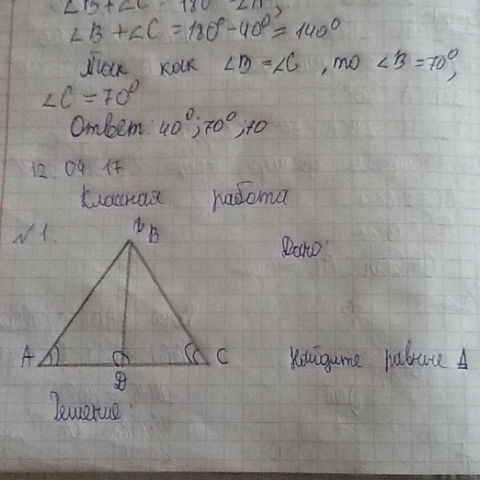 ∠B+∠C = 180° - ∠A,
∠B+∠C = 180° - 40° = 140°
Так как ∠B = ∠C, то ∠B = 70°,
∠C = 70°
Ответ: 40°; 70°; 70
12. 04 17
Классная работа
№1.
B
Дано:
A
C
D
Найдите равные Δ
Решение: